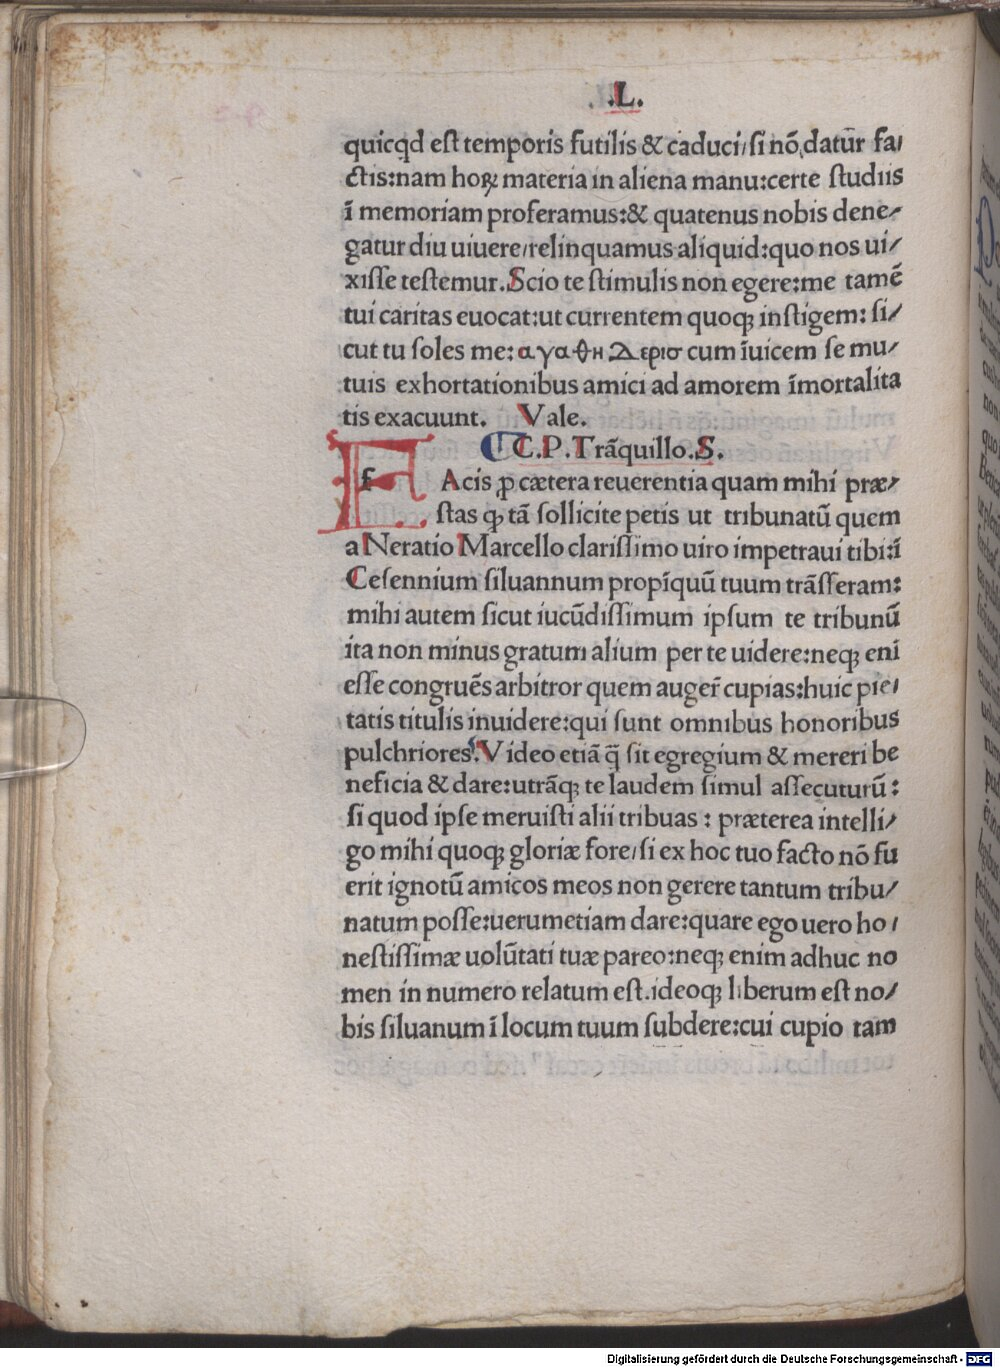 .L.
quicqd est temporis futilis & caduci/si nõ datur̃ fa/
ctis:nam hoꝝ materia in aliena manu:certe studiis
ĩ memoriam proferamus:& quatenus nobis dene/
gatur diu uiuere/relinquamus aliquid:quo nos ui/
xisse testemur.Scio te stimulis non egere:me tamẽ
tui caritas euocat:ut currentem quoqꝫ instigem: si/
cut tu soles me: αγαθη Δερισ cum ĩuicem se mu/
tuis exhortationibus amici ad amorem ĩmortalita
tis exacuunt. Vale.
C.P.Trãquillo.S.
f Acis ꝓ cætera reuerentia quam mihi præ/
stas qꝫ tã sollicite petis ut tribunatũ quem
a Neratio Marcello clarissimo uiro impetraui tibi:ĩ
Cesennium siluannum propĩquũ tuum trãsferam:
mihi autem sicut iucũdissimum ipsum te tribunũ
ita non minus gratum alium per te uidere:neqꝫ eni
esse congruẽs arbitror quem auger̃ cupias:huic pie/
tatis titulis inuidere:qui sunt omnibus honoribus
pulchriores.Video etiã q̃ sit egregium & mereri be
neficia & dare:utrãqꝫ te laudem simul assecuturũ:
si quod ipse meruisti alii tribuas: præterea intelli/
go mihi quoqꝫ gloriæ fore/si ex hoc tuo facto nõ fu
erit ignotũ amicos meos non gerere tantum tribu/
natum posse:uerumetiam dare:quare ego uero ho/
nestissimæ uolũtati tuæ pareo:neqꝫ enim adhuc no
men in numero relatum est.ideoqꝫ liberum est no/
bis siluanum ĩ locum tuum subdere:cui cupio tam
Digitalisierung gefördert durch die Deutsche Forschungsgemeinschaft - DFG